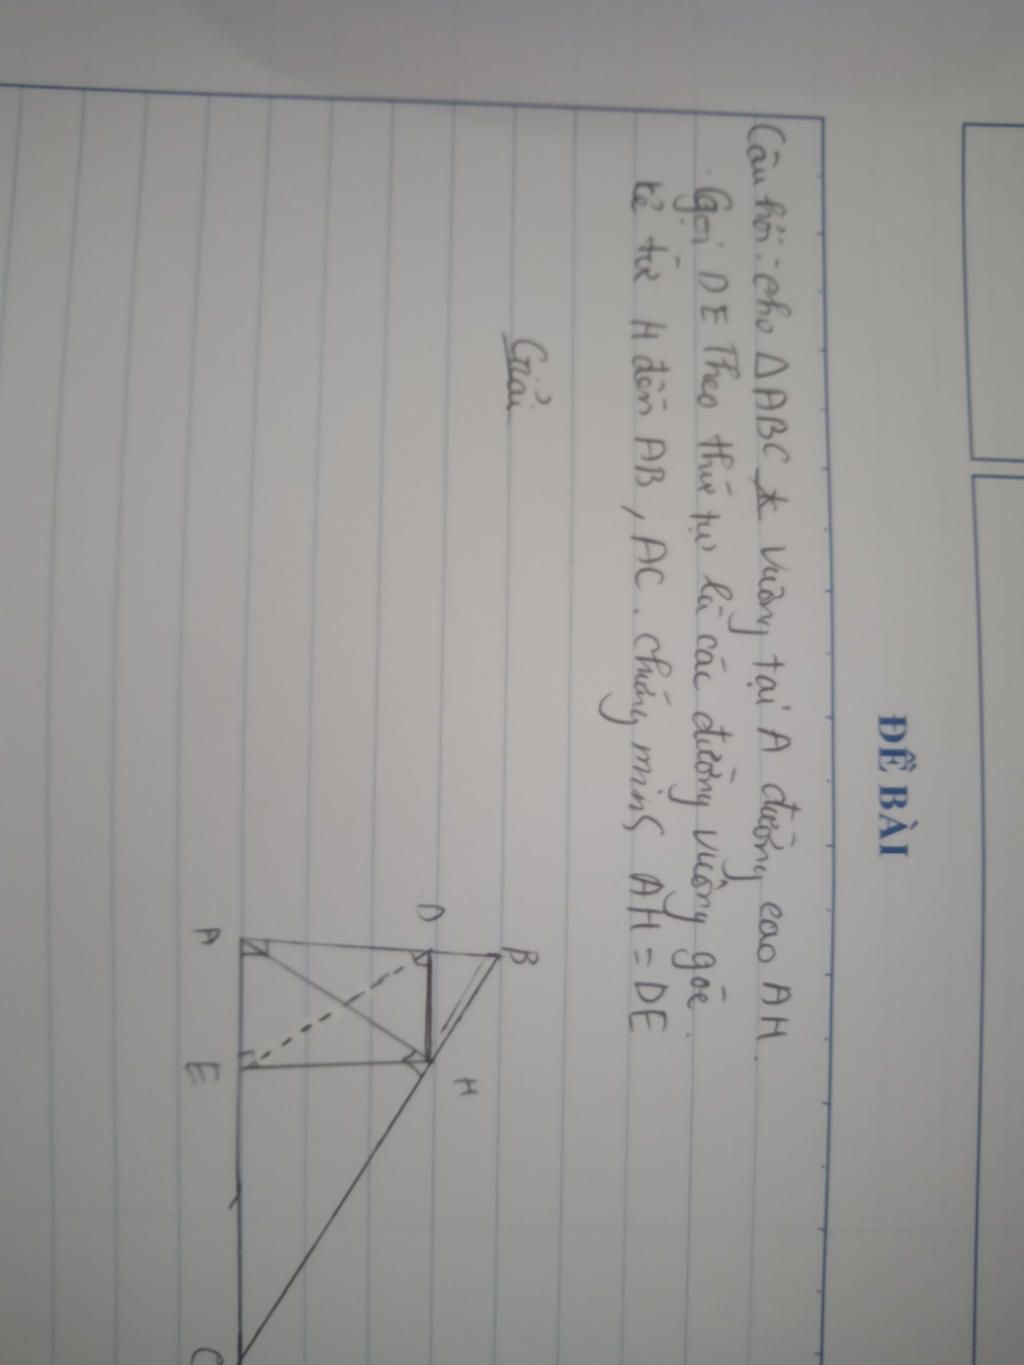 ĐỀ BÀI
Câu hỏi: cho ΔABC vuông tại A đường cao AH.
Gọi DE Theo thứ tự là các đường vuông góc
kẻ từ H đến AB, AC. chứng minh AH = DE
Giải
B
D
H
A
E
C